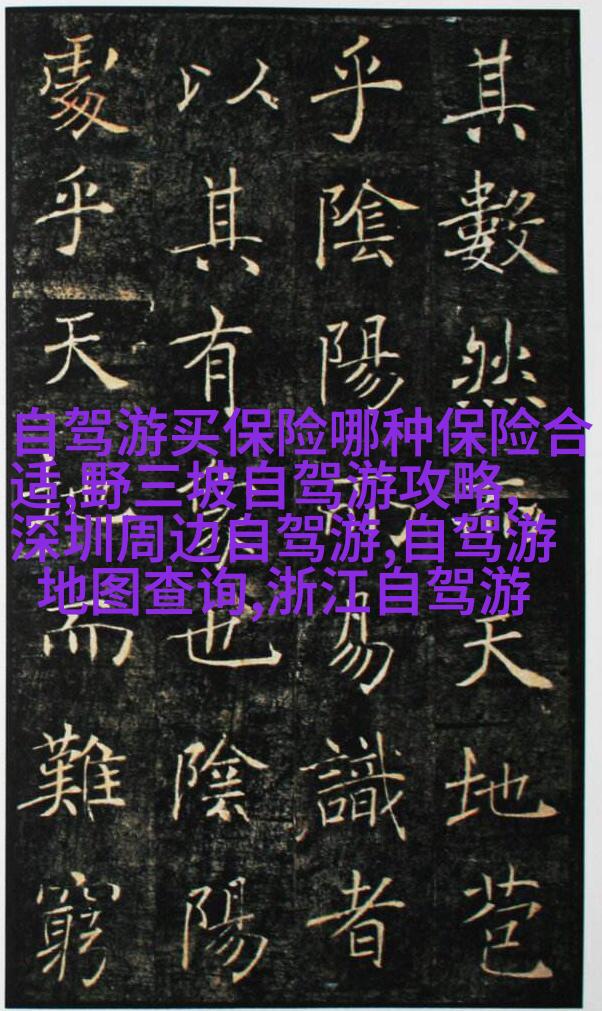 其數然而天地苞
乎陰陽而易識者
以其有象也陰陽
處乎天而難窮
自驾游买保险哪种保险合
适,野三坡自驾游攻略,
深圳周边自驾游,自驾游
地图查询,浙江自驾游